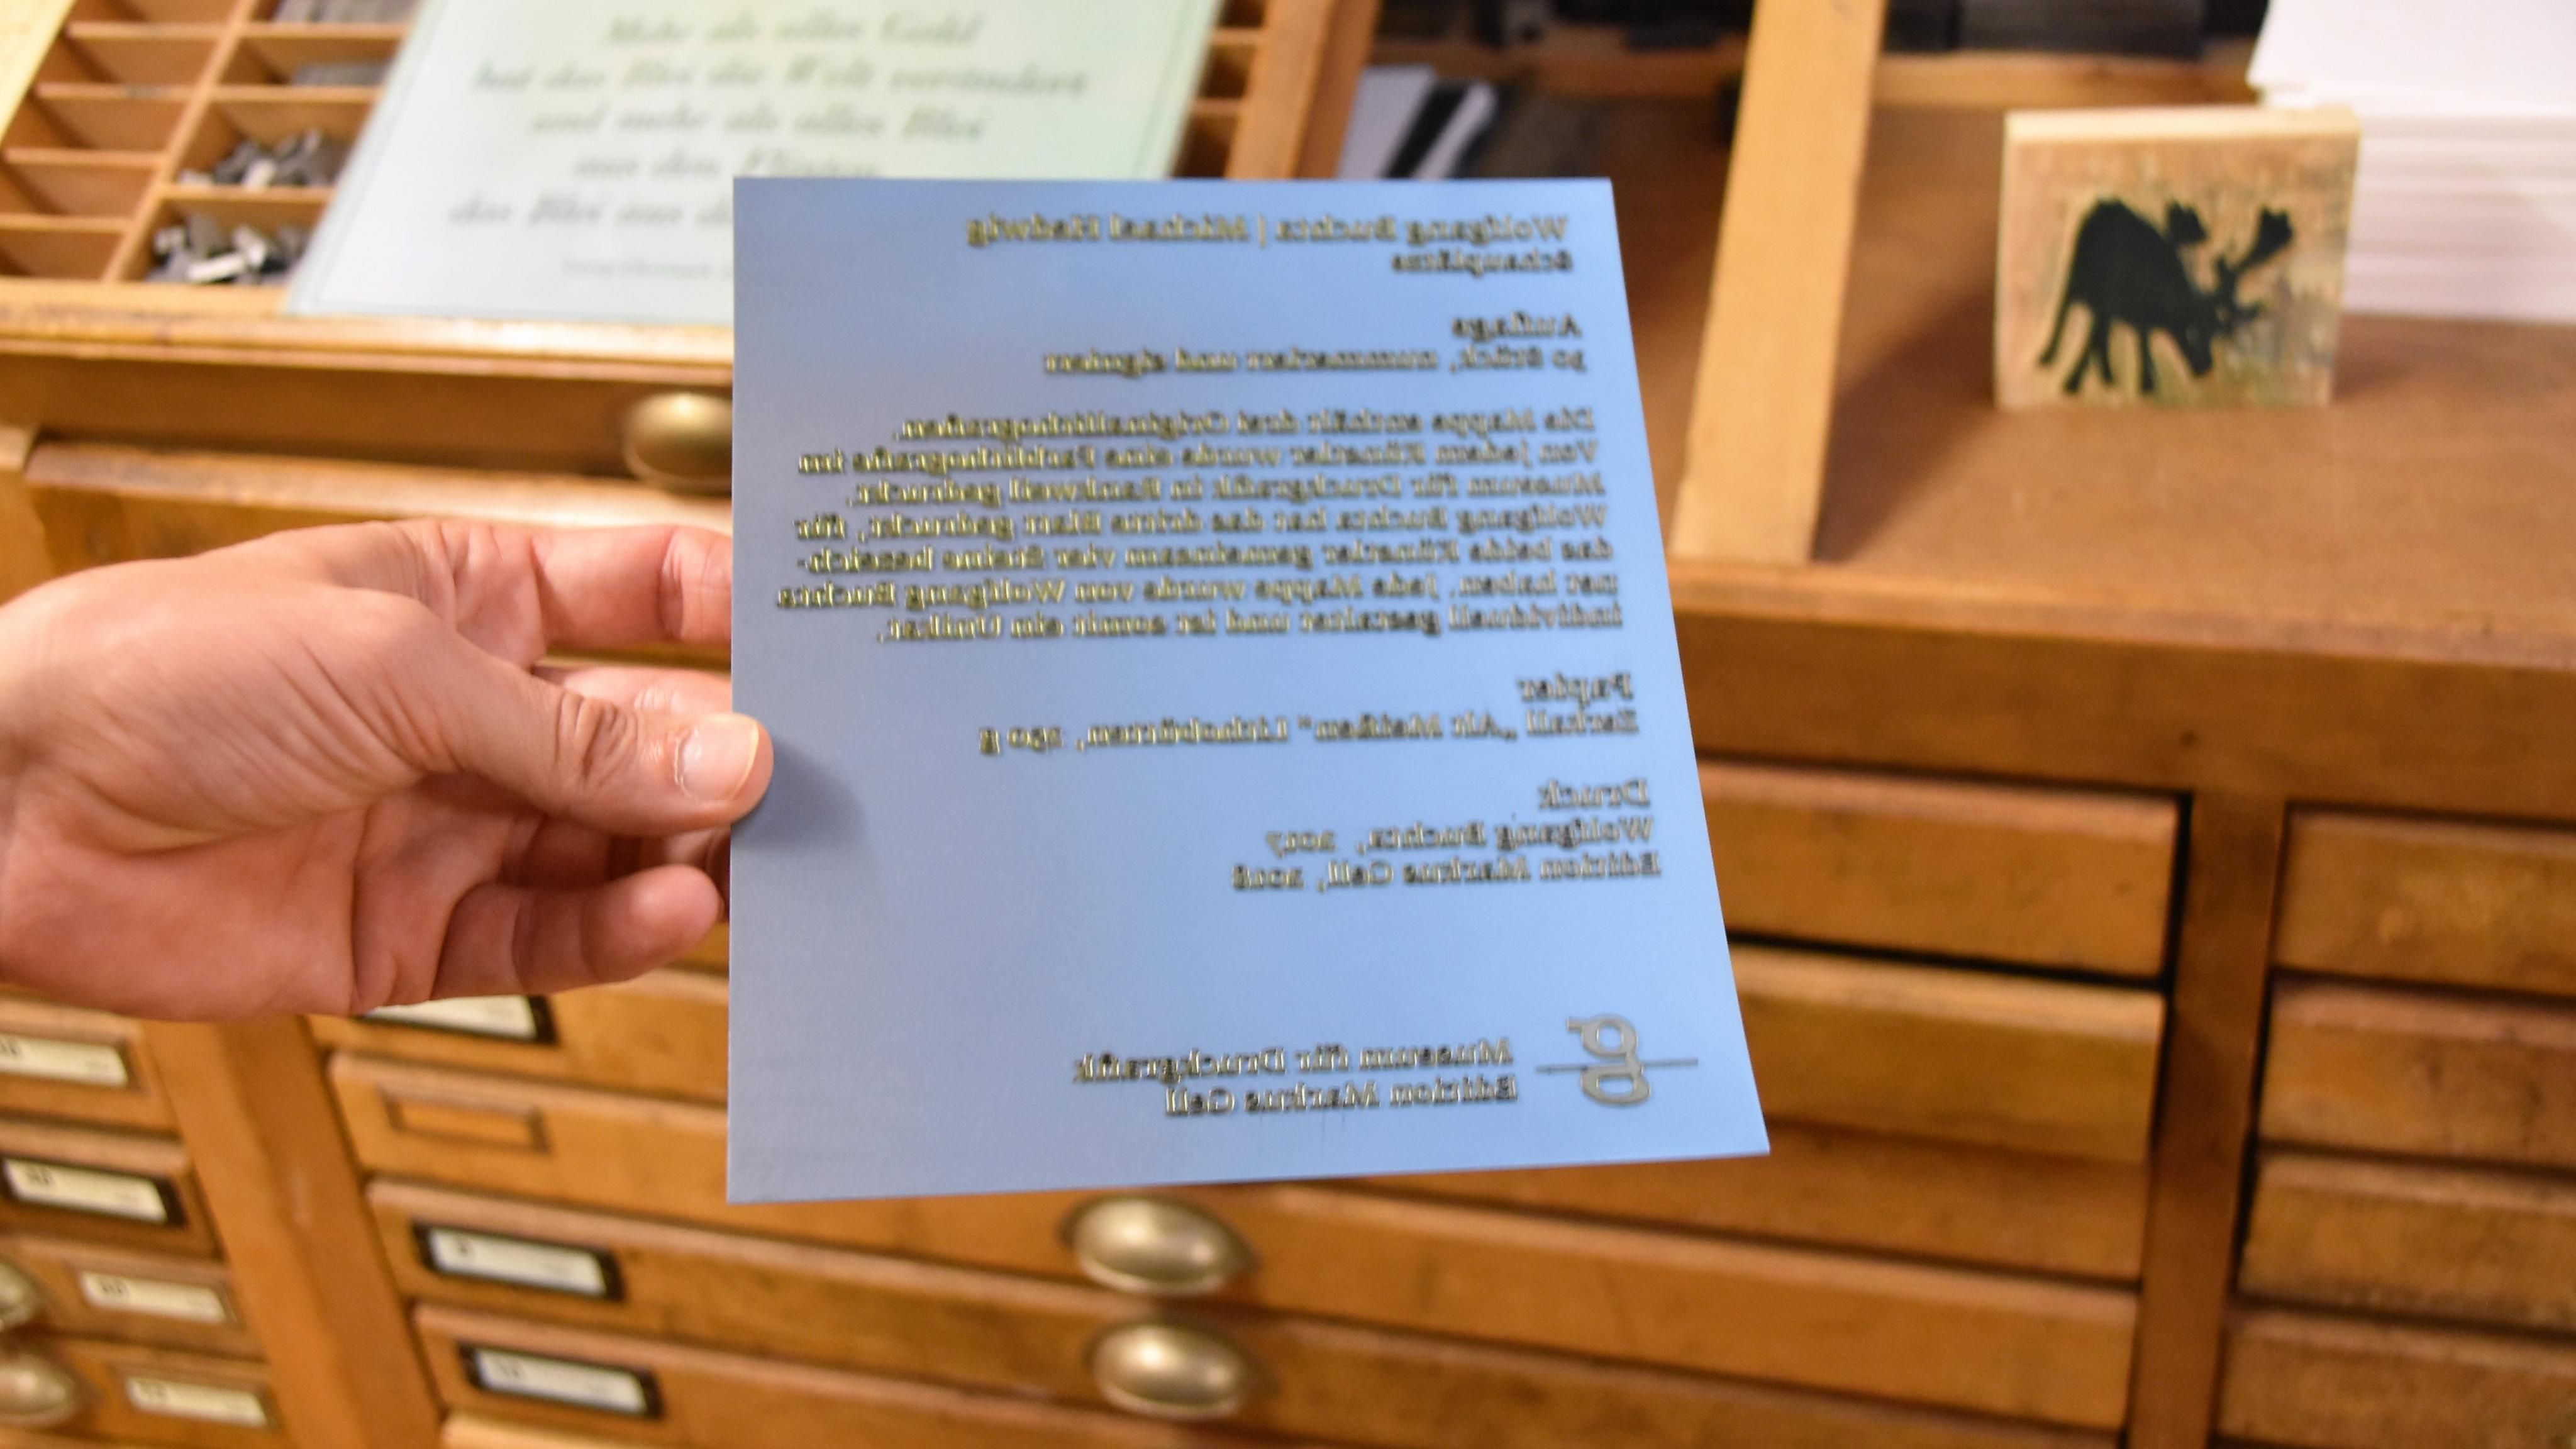 Mehr als alles Gold
hat das Blei die Welt verändert
und mehr als alles Blei
aus den Flinten
das Blei aus
Wolfgang Buchta | Michael Hedwig
Schauplätze
Auflage
30 Stück, nummeriert und signiert
Die Mappe enthält drei Originallithografien.
Von jedem Künstler wurde eine Farblithografie im
Museum für Druckgrafik in Rankweil gedruckt.
Wolfgang Buchta hat das dritte Blatt gedruckt, für
das beide Künstler gemeinsam vier Steine bezeich-
net haben. Jede Mappe wurde von Wolfgang Buchta
individuell gestaltet und ist somit ein Unikat.
Papier
Zerkall „Alt Meißen“ Lithobütten, 250 g
Druck
Wolfgang Buchta, 2017
Edition Markus Gell, 2018
g
Museum für Druckgrafik
Edition Markus Gell